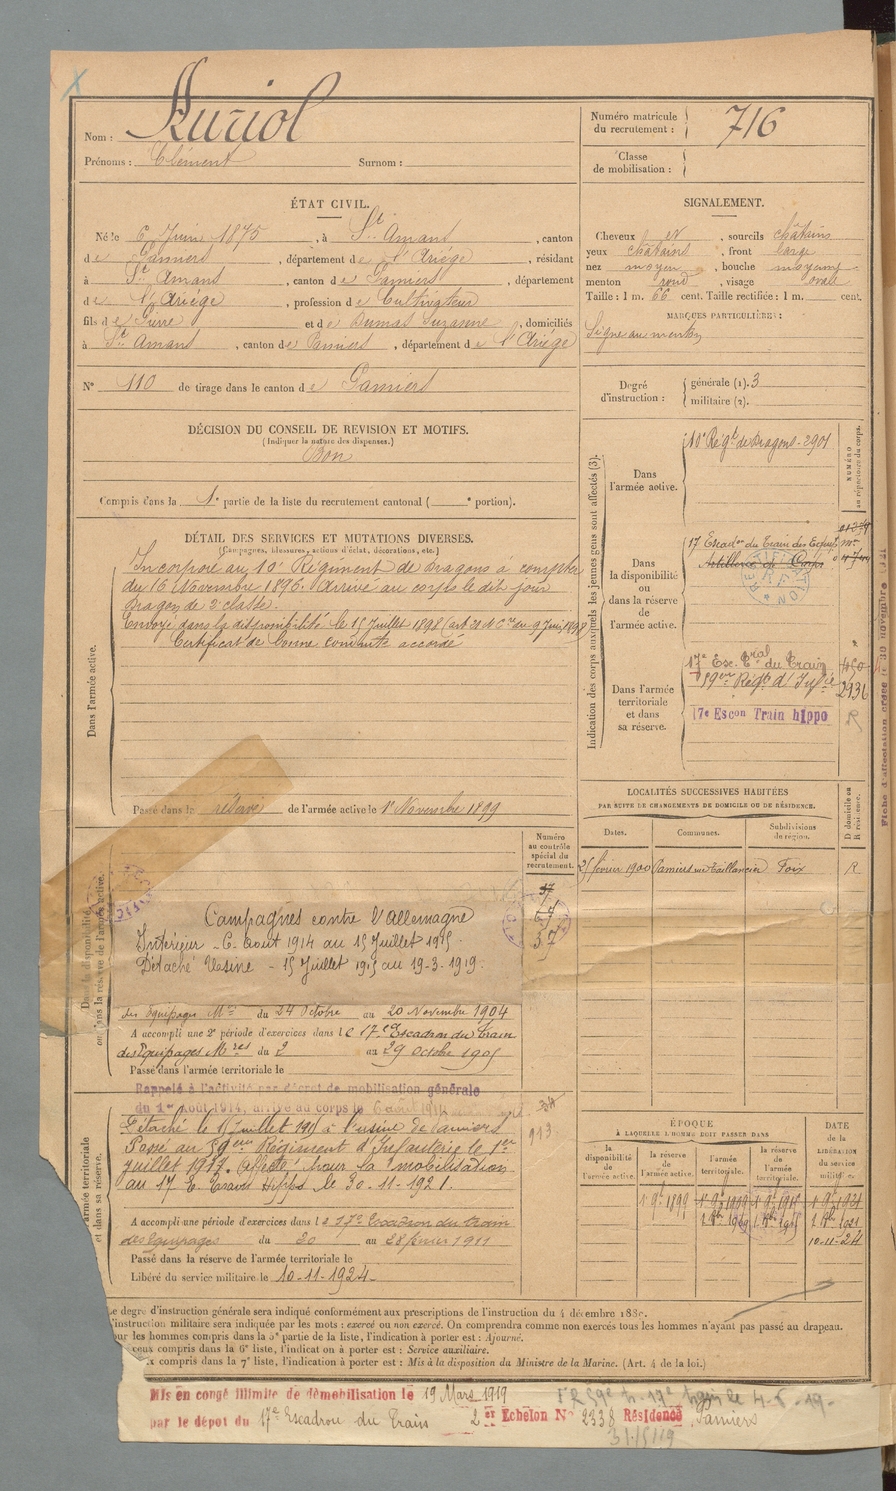 Nom : Auriol
Prénoms : Clément Surnom :
Numéro matricule du recrutement : 716
Classe de mobilisation :
ÉTAT CIVIL.
Né le 6 Juin 1875, à St Amans, canton
de Pamiers, département de l'Ariége, résidant
à St Amans, canton de Pamiers, département
de l'Ariége, profession de Cultivateur
fils de Pierre et de Dumas Suzanne, domiciliés
à St Amans, canton de Pamiers, département de l'Ariége
N° 110 de tirage dans le canton de Pamiers
SIGNALEMENT.
Cheveux et, sourcils châtains
yeux châtains, front large
nez moyen, bouche moyenne
menton rond, visage ovale
Taille : 1 m. 66 cent. Taille rectifiée : 1 m. cent.
MARQUES PARTICULIÈRES :
Signe au menton
Degré d'instruction : générale (1). 3
militaire (2).
DÉCISION DU CONSEIL DE REVISION ET MOTIFS.
(Indiquer la nature des dispenses.)
Bon
Compris dans la 1e partie de la liste du recrutement cantonal ( e portion).
DÉTAIL DES SERVICES ET MUTATIONS DIVERSES.
(Campagnes, blessures, actions d'éclat, décorations, etc.)
Dans l'armée active.
Incorporé au 10e Régiment de Dragons à compter
du 16 Novembre 1896. Arrivé au corps le dit jour
Dragon de 2e classe.
Envoyé dans la disponibilité le 15 Juillet 1898 (art 20 du 9 Juin 1898)
Certificat de bonne conduite accordé
Passé dans la réserve de l'armée active le 1er Novembre 1899
Indication des corps auxquels les jeunes gens sont affectés (3).
NUMÉRO au répertoire du corps.
Dans l'armée active.
10e Régt de Dragons - 2901
Dans la disponibilité ou dans la réserve de l'armée active.
17 Escadon du Train des Equip. mres
Artillerie de Corps
Dans l'armée territoriale et dans sa réserve.
17e Esc. Tral du Train
59eme Régt d'Inf.ie 2936
17e Escon Train hippo R
LOCALITÉS SUCCESSIVES HABITÉES
PAR SUITE DE CHANGEMENTS DE DOMICILE OU DE RÉSIDENCE.
D domicile ou R résidence.
Dates. Communes. Subdivisions de région.
25 février 1900 Pamiers Foix R
Numéro au contrôle spécial du recrutement.
Dans la disponibilité ou dans la réserve de l'armée active.
Campagnes contre l'Allemagne
Intérieur - 6 Août 1914 au 15 Juillet 1915.
Détaché Usine - 15 Juillet 1915 au 19-3-1919.
des Equipages Mres du 24 Octobre au 20 Novembre 1904
A accompli une 2e période d'exercices dans le 17e Escadron du train
des Equipages Mres du 2 au 29 octobre 1905
Passé dans l'armée territoriale le
armée territoriale et dans sa réserve.
Rappelé à l'activité par décret de mobilisation générale
du 1er août 1914, arrivé au corps le 6 août 1914
Détaché le 15 Juillet 1915 à l'usine de Pamiers
Passé au 59eme Régiment d'Infanterie le 1er
juillet 1917. Affecté pour la mobilisation
au 17 E. Train Hippo le 30-11-1921.
A accompli une période d'exercices dans le 17e Escadron du train
des Equipages du 20 au 28 février 1911
Passé dans la réserve de l'armée territoriale le
Libéré du service militaire le 10-11-1924
ÉPOQUE
À LAQUELLE L'HOMME DOIT PASSER DANS
DATE de la LIBÉRATION du service militaire.
la disponibilité de l'armée active. la réserve de l'armée active. l'armée territoriale. la réserve de l'armée territoriale.
1 9bre 1899 1 9bre 1909 1 9bre 1915 1 9bre 1921
10-11-24
Le degré d'instruction générale sera indiqué conformément aux prescriptions de l'instruction du 4 décembre 1889.
L'instruction militaire sera indiquée par les mots : exercé ou non exercé. On comprendra comme non exercés tous les hommes n'ayant pas passé au drapeau.
Pour les hommes compris dans la 5e partie de la liste, l'indication à porter est : Ajourné.
ceux compris dans la 6e liste, l'indication à porter est : Service auxiliaire.
compris dans la 7e liste, l'indication à porter est : Mis à la disposition du Ministre de la Marine. (Art. 4 de la loi.)
Mis en congé illimité de démobilisation le 19 Mars 1919
par le dépôt du 17e Escadron du Train 2er Echelon N° 2338 Résidence Pamiers
31/5/19